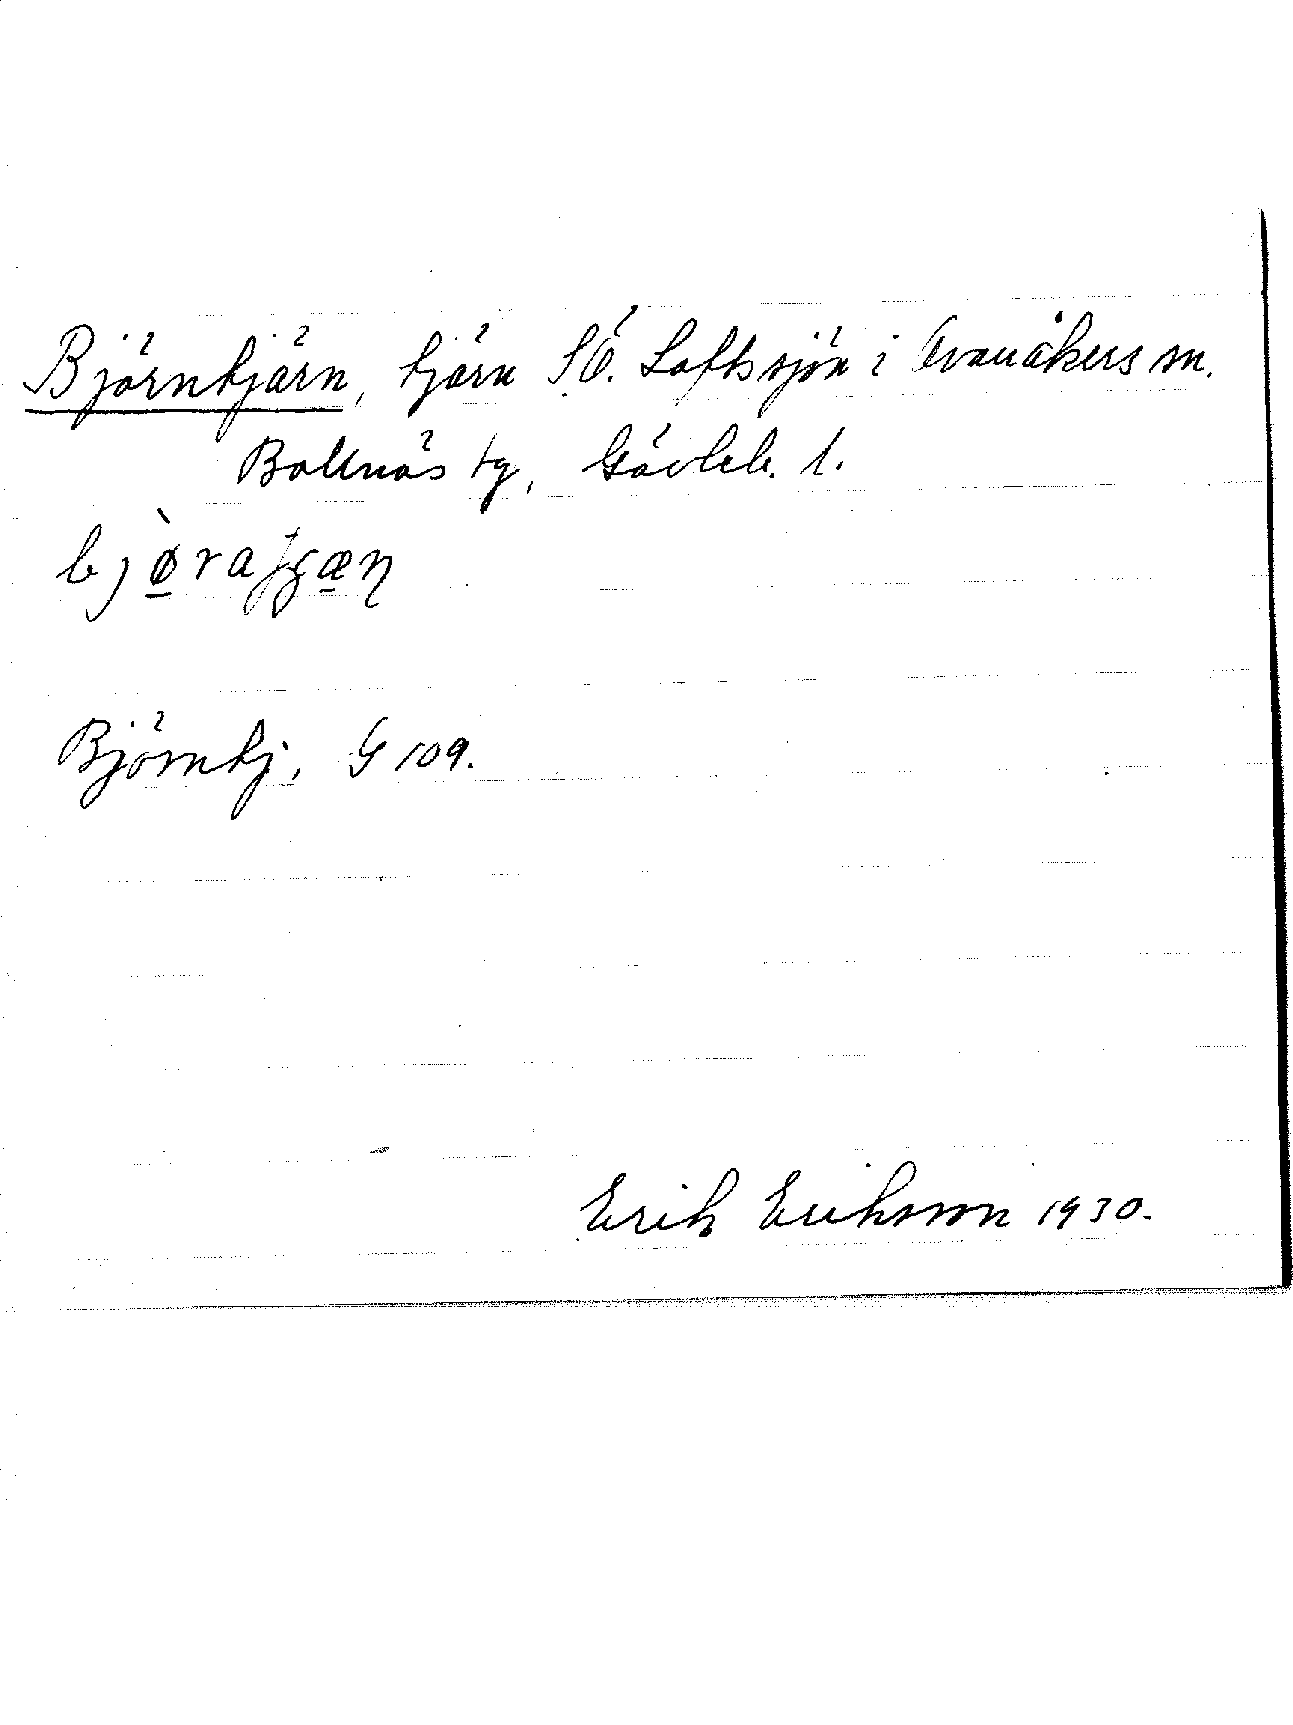 Björntjärn, tjärn SÖ. Loftssjön i Ovanåkers sn.
Bollnäs tg, Gävleb. l.
Björntj, G 109.
Erik Eriksson 1930.